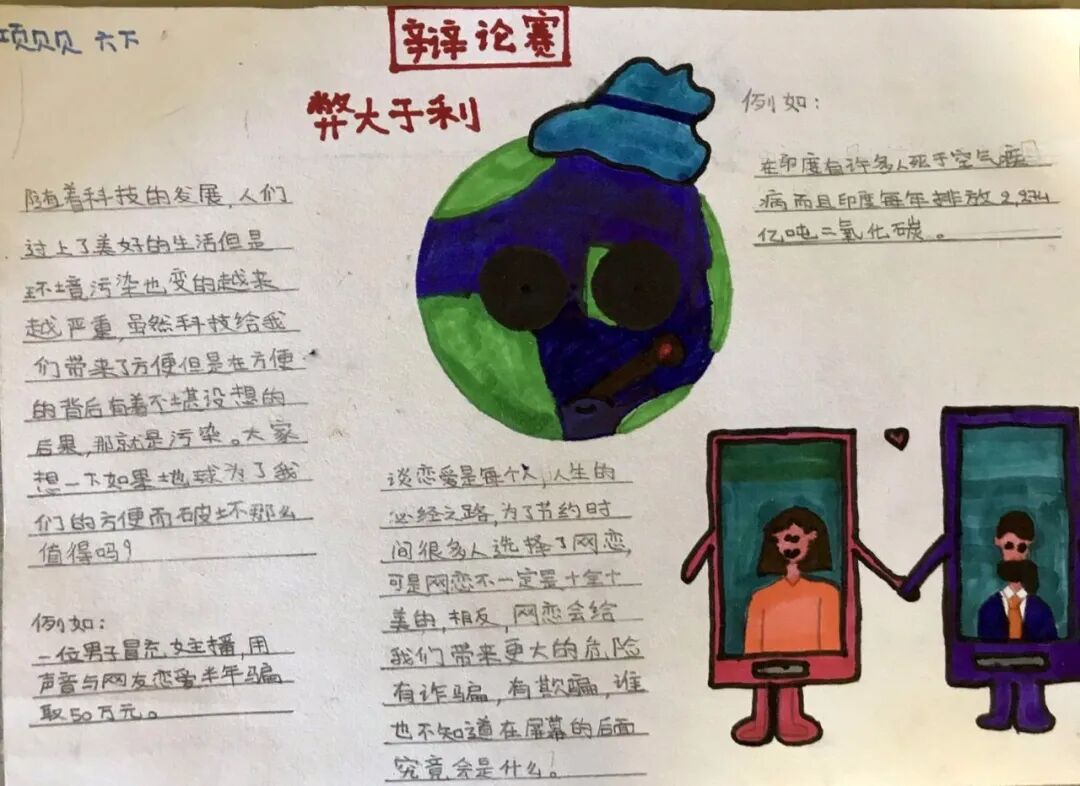 项贝贝 六下
辩论赛
弊大于利
随着科技的发展,人们
过上了美好的生活但是
环境污染也变的越来
越严重,虽然科技给我
们带来了方便但是在方便
的背后有着不堪设想的
后果,那就是污染。大家
想一下如果地球为了我
们的方便而破坏那么
值得吗?
例如:
一位男子冒充女主播,用
声音与网友恋爱半年骗
取50万元。
谈恋爱是每个人,人生的
必经之路,为了节约时
间很多人选择了网恋,
可是网恋不一定是十全十
美的,相反,网恋会给
我们带来更大的危险
有诈骗,有欺骗,谁
也不知道在屏幕的后面
究竟会是什么。
例如:
在印度有许多人死于空气疾
病而且印度每年排放2,274
亿吨二氧化碳。